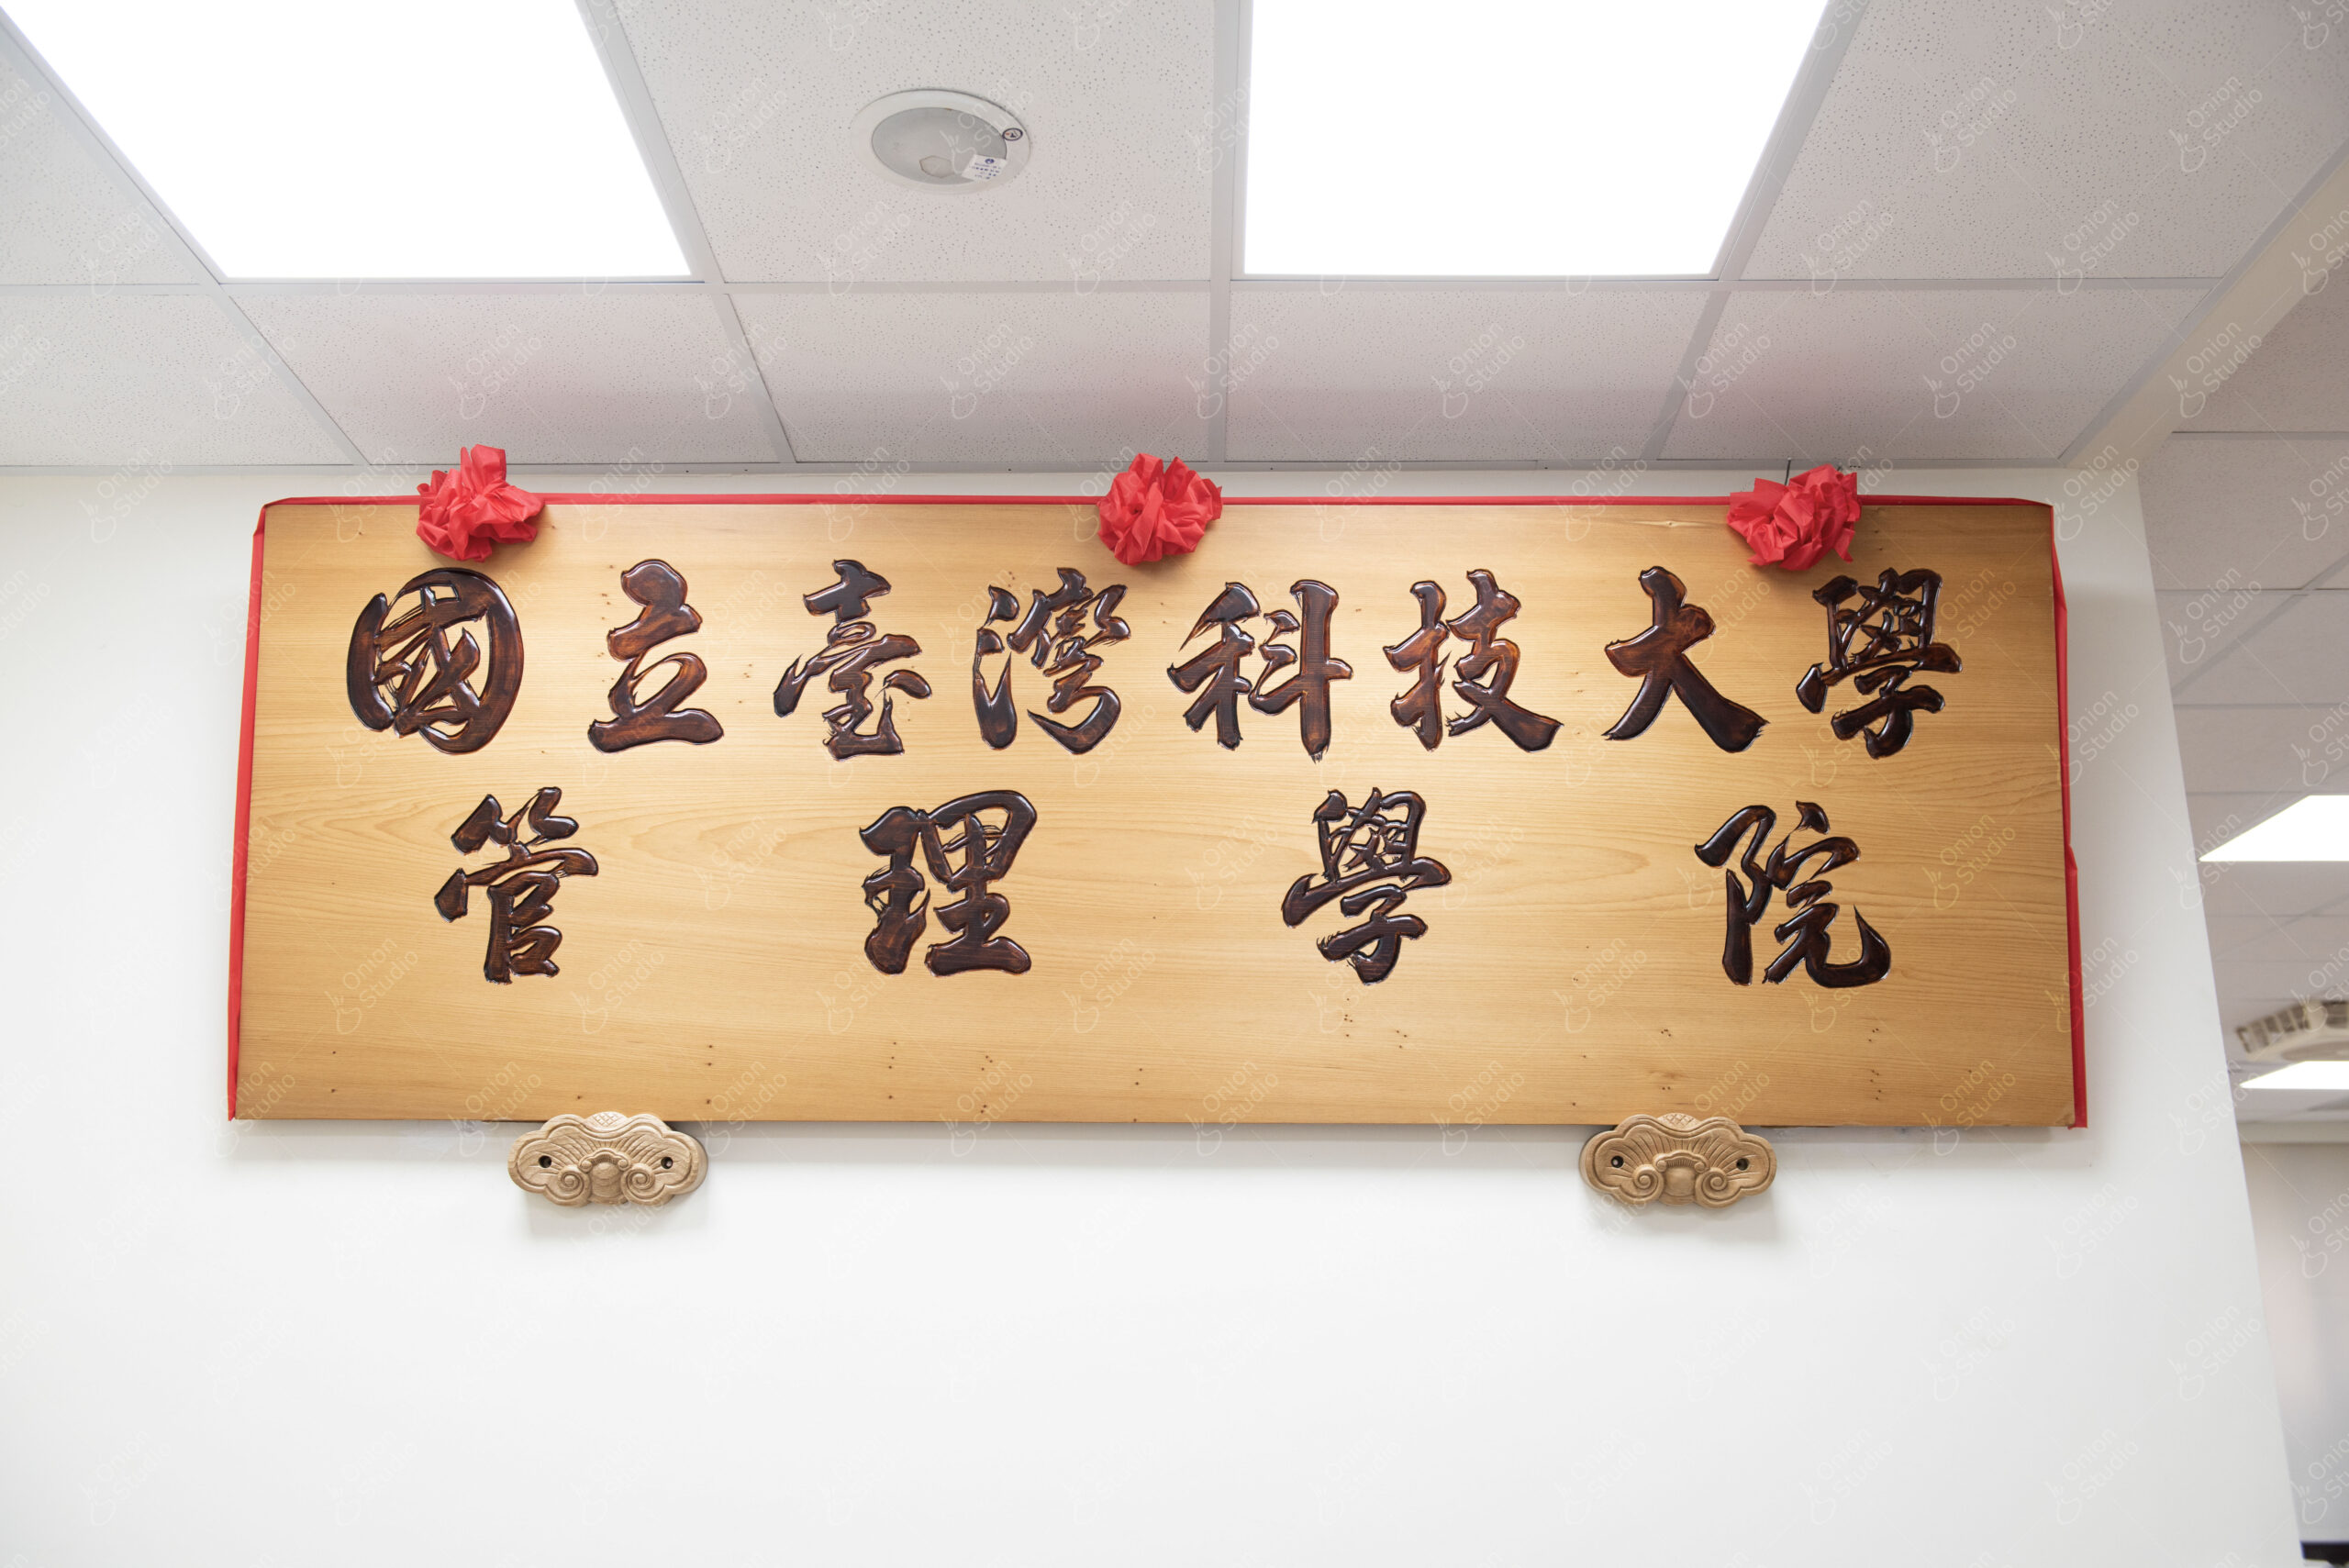 國立臺灣科技大學
管理學院
Onion Studio